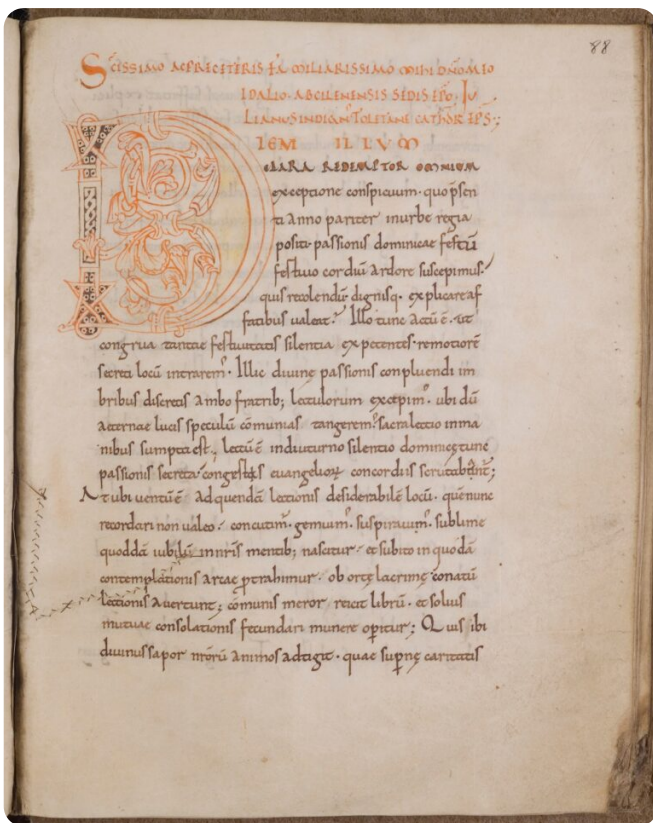 88
SCISSIMO AC PRECETERIS FAMILIARISSIMO MIHI DÑO MIO
IDALIO · ABCILENENSIS SEDIS EPO, IU
LIANUS INDIGN' TOLETANE CATHDR EPS;
DIEM ILLUM
CLARA REDEMPTOR OMNIUM
exceptione conspicuum · quo psen
ti anno pariter inurbe regia
positi · passionis dominicae festũ
festiuo cordiũ ardore suscepimus ·
quis recolendũ · dignisq · explicare af
fatibus ualeat · Illo tunc actũ ẽ · ut
congrua tantae festiuitatis silentia expetentes · remotiorẽ
secreti locũ intrarem' · Illic diuinę passionis conpluendi im
bribus discretis ambo fratrib; lectulorum excepim' · ubi dũ
aeternae lucis speculũ cõmunias tangerem' · sacra lectio inma
nibus sumpta est, lectũ ẽ indiuturno silentio dominicę tunc
passionis secreta · congestęs euangelior concordiis
At ubi uentũ ẽ adquendã lectionis desiderabilẽ locũ · quẽ nunc
recordari non ualeo · concutim' · gemium' · suspiraium' · sublime
quoddã iubilũ innris mentib; nascitur · et subito in quodã
contemplationis arcae ptrahimur · ob ortę lacrimę conatũ
lectionis auertunt; cõmunis meror reicit librũ · et solius
mutuae consolationis fecundari munere opitur; Quis ibi
diuinus sapor nrorũ animos adtigit · quae supnę caritatis